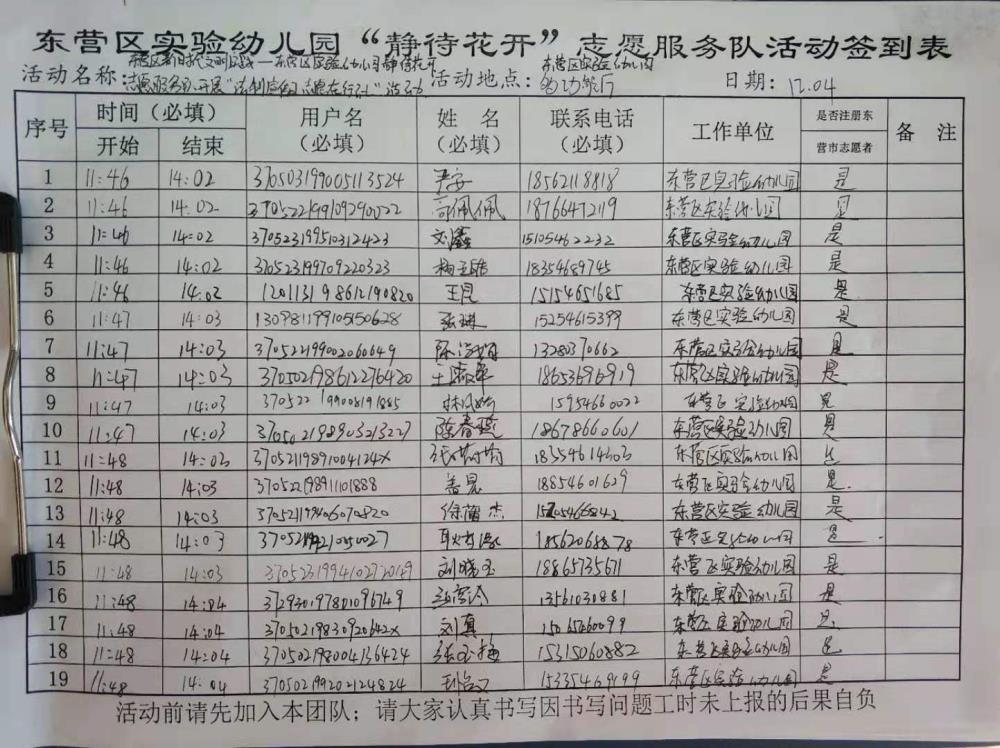 东营区实验幼儿园“静待花开”志愿服务队活动签到表
活动名称: 活动地点: 东营区实验幼儿园 多功能厅 日期: 12.04
序号 时间(必填) 用户名(必填) 姓 名(必填) 联系电话(必填) 工作单位 是否注册东营市志愿者 备 注
开始 结束
1 11:46 14:02 370503199005113524 18562118818 东营区实验幼儿园 是
2 11:46 14:02 370522199109290022 佩佩 18766472119 东营区实验幼儿园 是
3 11:46 14:02 370523199510312423 刘鑫 15105462232 东营区实验幼儿园 是
4 11:46 14:02 370523199709220323 18354689745 东营区实验幼儿园 是
5 11:46 14:02 120113198612190820 王昆 15154651685 东营区实验幼儿园 是
6 11:47 14:03 130981199105150628 张琳 15254615399 东营区实验幼儿园 是
7 11:47 14:03 370522199002060649 陈 13280370662 东营区实验幼儿园 是
8 11:47 14:03 370502198612276420 王 18653696919 东营区实验幼儿园 是
9 11:47 14:03 370522199008191885 林 15954660022 东营区实验幼儿园 是
10 11:47 14:03 370502198903213227 陈春 18678660601 东营区实验幼儿园 是
11 11:48 14:03 37052119891004124x 张 东营区实验幼儿园 是
12 11:48 14:03 370522198911101888 18854601629 东营区实验幼儿园 是
13 11:48 14:03 370521199406070820 徐 杰 东营区实验幼儿园 是
14 11:48 14:03 18562068878 东营区实验幼儿园 是
15 11:48 14:03 刘晓玉 18865735671 东营区实验幼儿园 是
16 11:48 14:04 372930197801096749 13561030881 东营区实验幼儿园 是
17 11:48 14:04 37050219830920642x 刘真 15065460099 东营区实验幼儿园 是
18 11:48 14:04 370502198004136424 张玉梅 15315060882 东营区实验幼儿园 是
19 11:48 14:04 370502199202124824 15335469199 东营区实验幼儿园 是
活动前请先加入本团队;请大家认真书写因书写问题工时未上报的后果自负